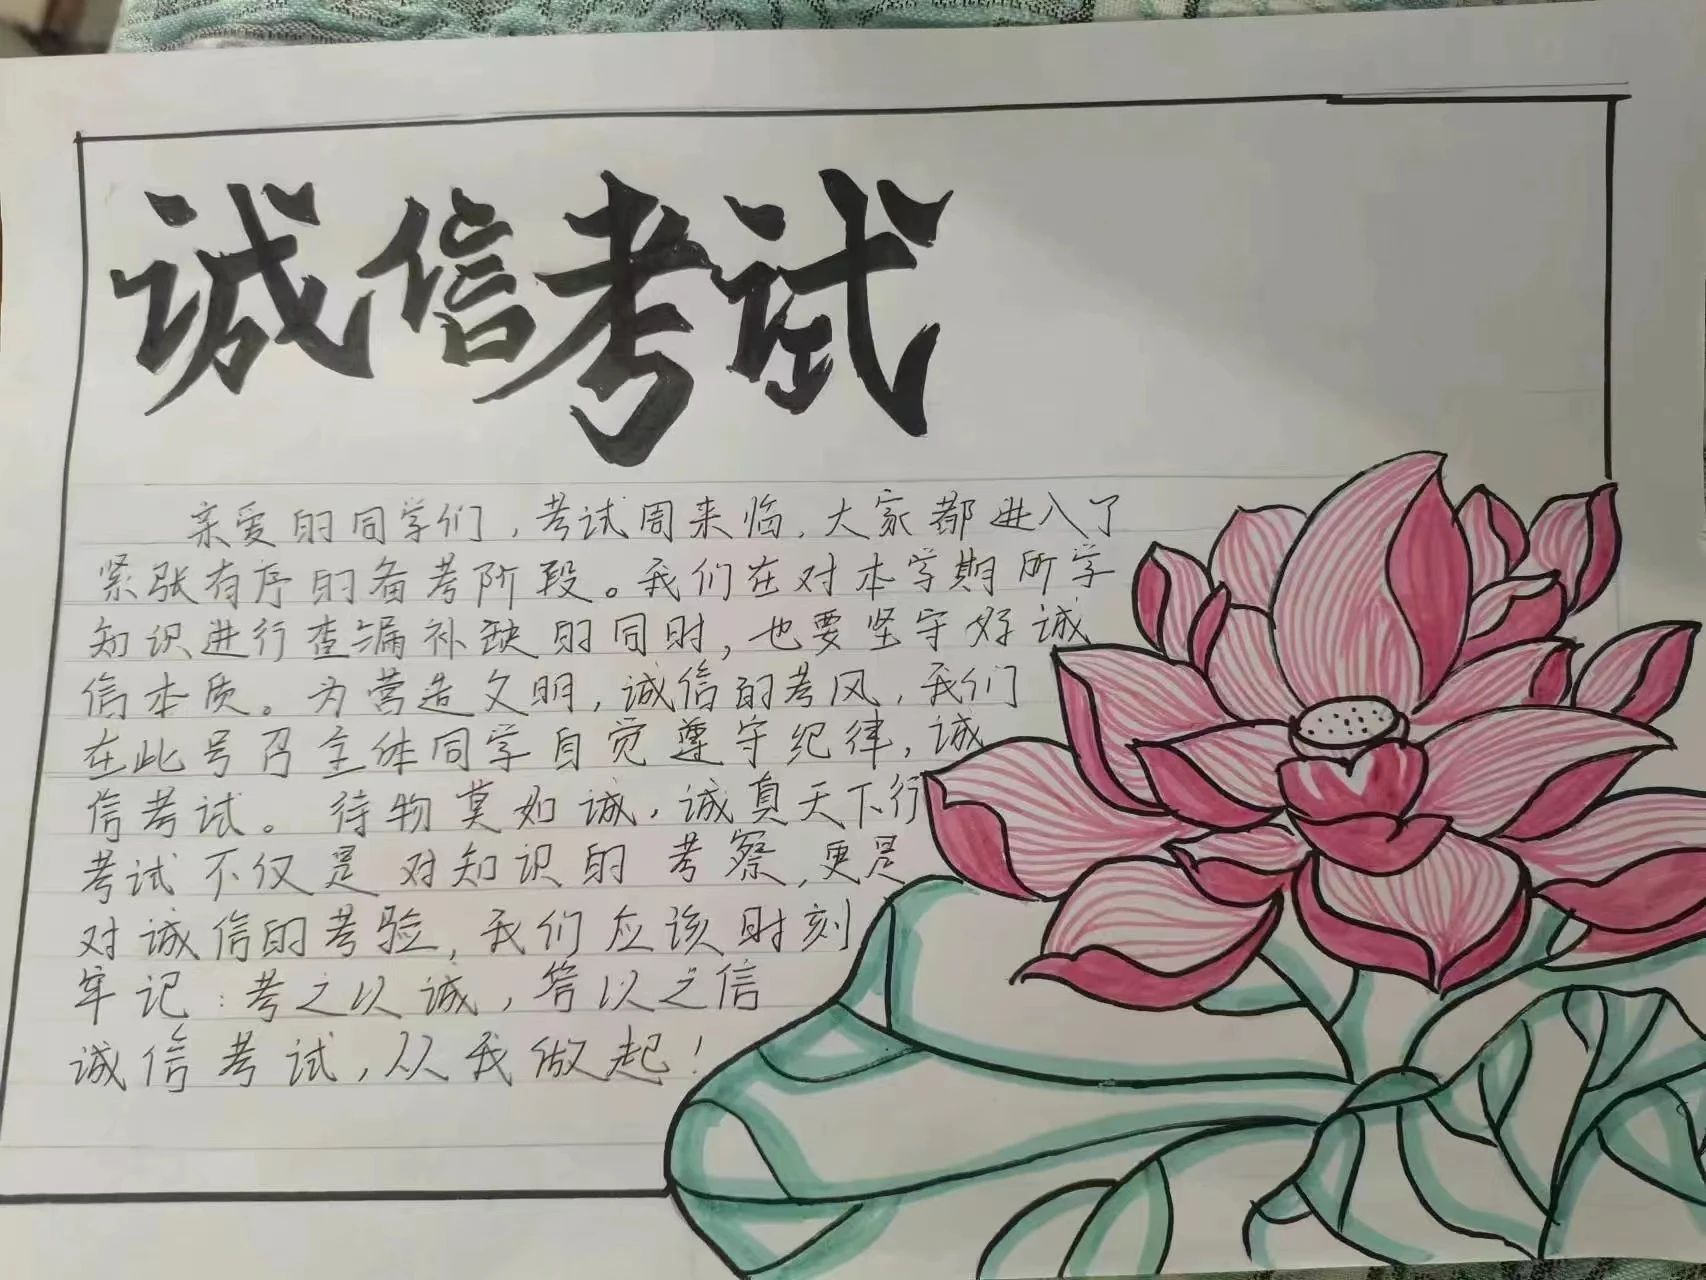 诚信考试
亲爱的同学们，考试周来临，大家都进入了
紧张有序的备考阶段。我们在对本学期所学
知识进行查漏补缺的同时，也要坚守好诚
信本质。为营造文明，诚信的考风，我们
在此号召全体同学自觉遵守纪律，诚
信考试。待物莫如诚，诚真天下行
考试不仅是对知识的考察，更是
对诚信的考验，我们应该时刻
牢记：考之以诚，答以之信
诚信考试，从我做起！